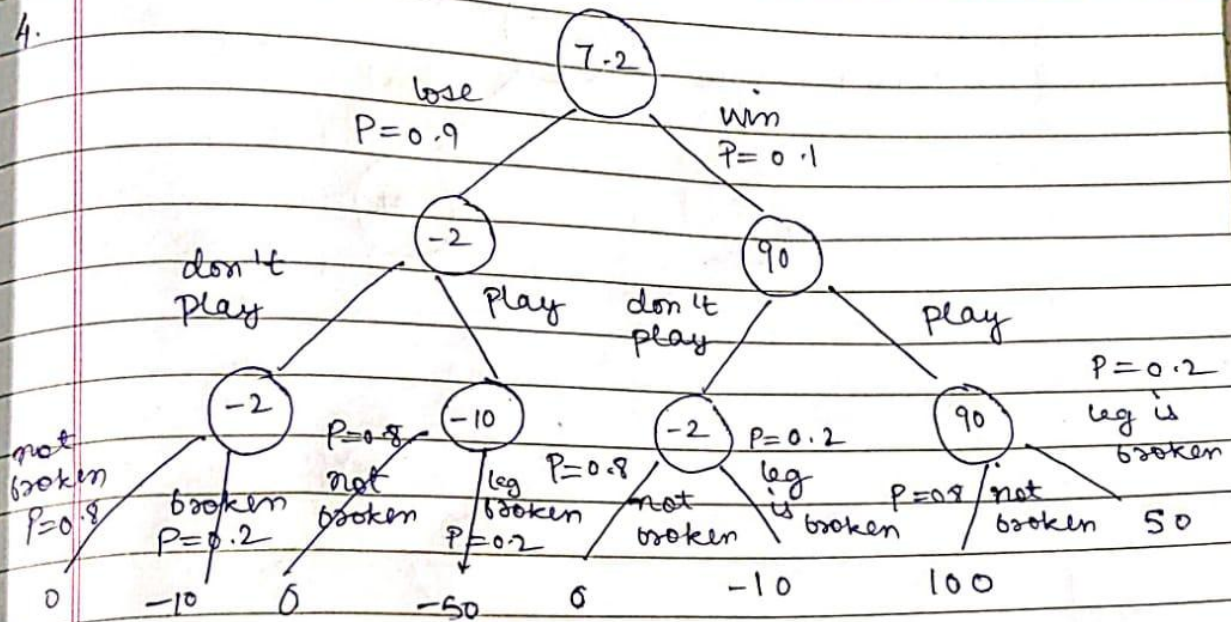 4.
7.2
lose
P=0.9
win
P=0.1
-2
90
don't
play
play
don't
play
play
-2
-10
-2
90
not
broken
P=0.8
broken
P=0.2
P=0.8
not
broken
leg
broken
P=0.2
P=0.8
not
broken
P=0.2
leg
is
broken
P=0.8
not
broken
P=0.2
leg is
broken
0
-10
0
-50
0
-10
100
50